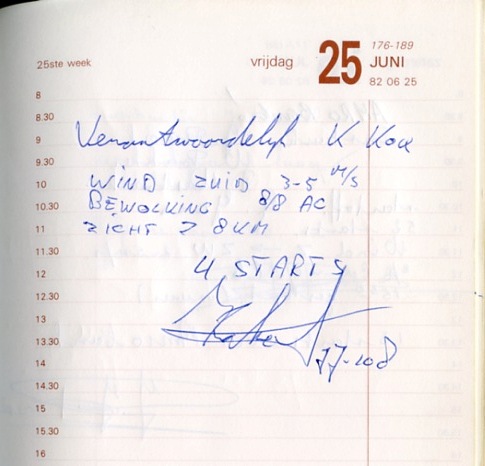 176-189
25ste week vrijdag 25 JUNI
82 06 25
8
8.30
9 Verantwoordelijk K Kox
9.30
10 WIND ZUID 3-5 M/S
10.30 BEWOLKING 8/8 AC
11 ZICHT > 8 KM
11.30
12 4 STARTS
12.30
13
13.30 77-108
14
14.30
15
15.30
16